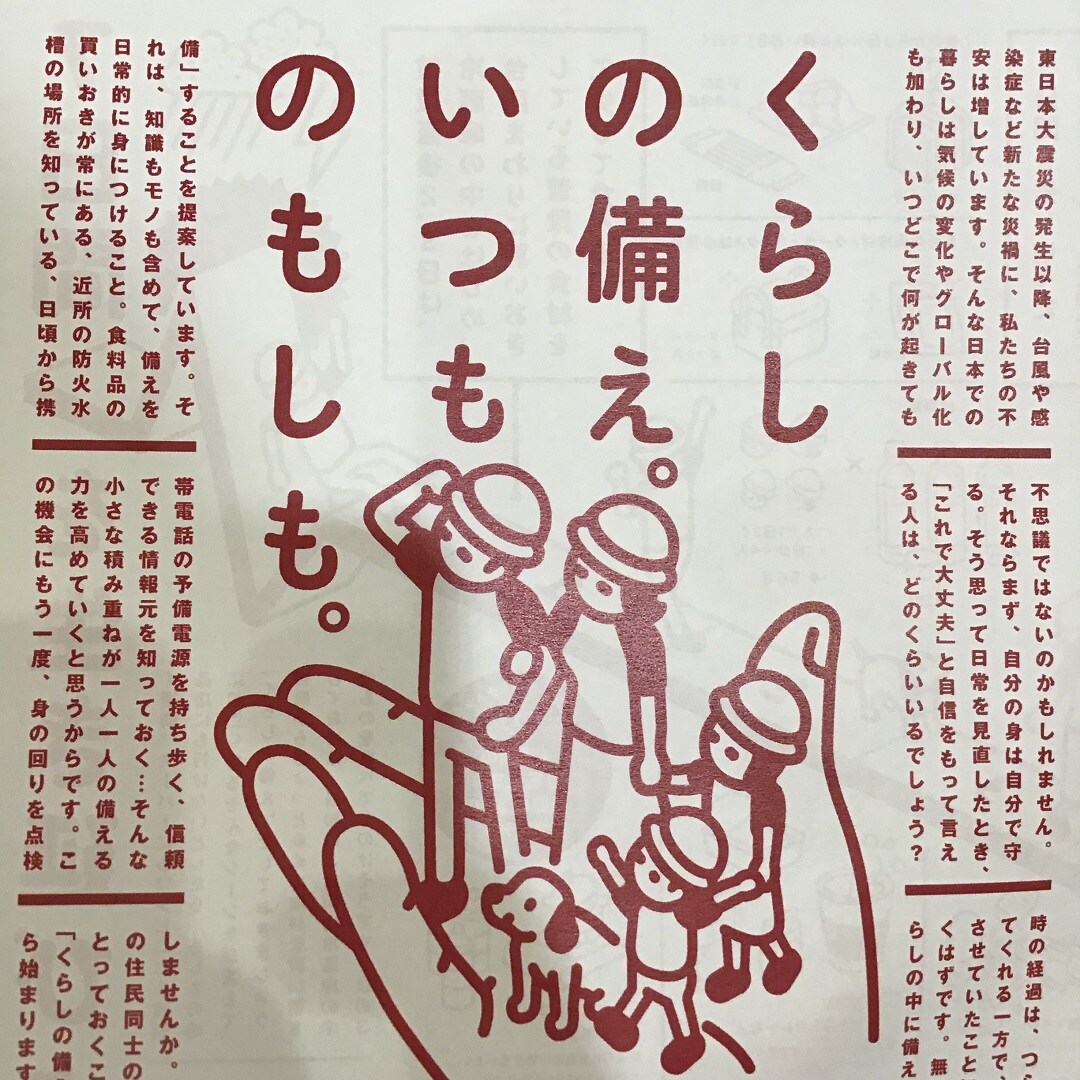 くらし
の備え。
いつも
のもしも。
東日本大震災の発生以降、台風や感
染症など新たな災禍に、私たちの不
安は増しています。そんな日本での
暮らしは気候の変化やグローバル化
も加わり、いつどこで何が起きても
不思議ではないのかもしれません。
それならまず、自分の身は自分で守
る。そう思って日常を見直したとき、
「これで大丈夫」と自信をもって言え
る人は、どのくらいいるでしょう？
時の経過は、つら
てくれる一方で、
させていたこと
くはずです。無
らしの中に備え
備」することを提案しています。そ
れは、知識もモノも含めて、備えを
日常的に身につけること。食料品の
買いおきが常にある、近所の防火水
槽の場所を知っている、日頃から携
帯電話の予備電源を持ち歩く、信頼
できる情報元を知っておく…そんな
小さな積み重ねが一人一人の備える
力を高めていくと思うからです。こ
の機会にもう一度、身の回りを点検
しませんか。
の住民同士の
とっておくこ
「くらしの備
ら始まります